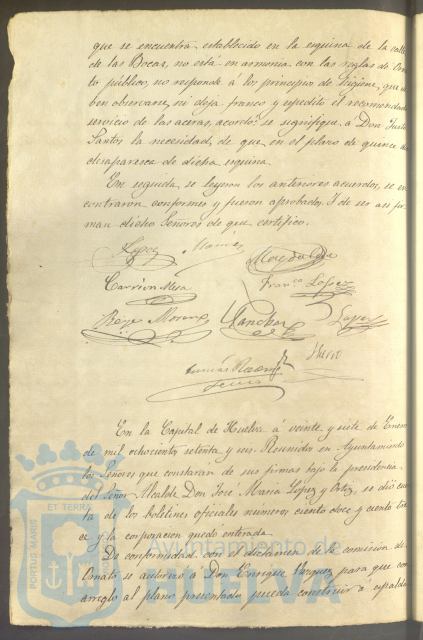 que se encuentra establecido en la esquina de la calle
de las Bocas, no está en armonia con las reglas de Orna
to público, no responde á los principios de higiene, que
ben observarse, ni deja franco y espedito el recomendado
servicio de las aceras, acordo: se signifique á Don Justo
Santos la necesidad, de que en el plazo de quince
desaparesca de dicha esquina.
En seguida se leyeron los anteriores acuerdos, se en
contraron conformes y fueron aprobados. I de ser asi fir
man dichos Señores de que certifico.
Lopez
Carrion Mesa
Franco Lopez
Reyes Moreno
Sanchez
Lopez
En la Capital de Huelva á veinte y siete de Enero
de mil ochocientos setenta y seis: Reunido en Ayuntamiento
los Señores que constarán de sus firmas bajo la presidencia
del Señor Alcalde Don José Maria López y Ortiz, se dió cuen
ta de los boletines oficiales números ciento doce y ciento tre
ce y la corporacion quedó enterada.
De conformidad con el dictámen de la comision de
Ornato se autorizó á Don Enrique Vazquez para que con
arreglo al plano presentado pueda construir á espalda
ET TERRA
PORTUS MARIS
Ayuntamiento de
HUELVA